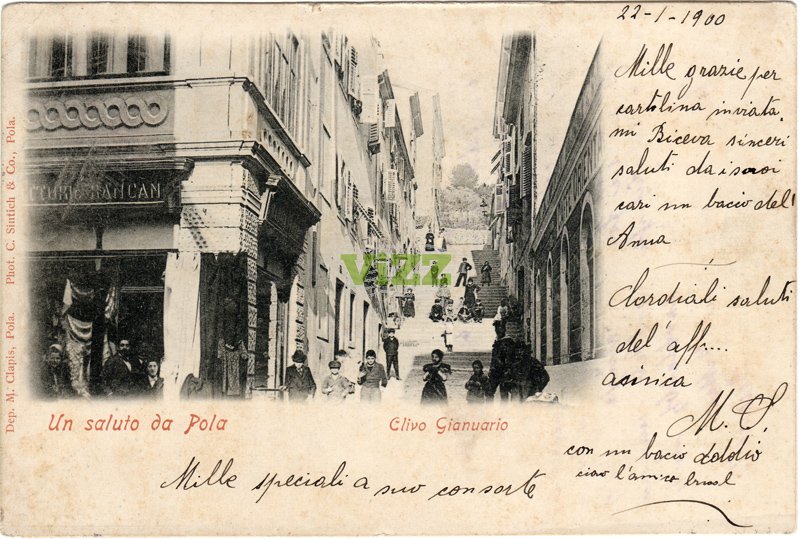 22-1-1900
Mille grazie per
cartolina inviata.
mi Riceva sinceri
saluti da i suoi
cari un bacio dell'
Anna
Cordiali saluti
del' aff....
amica
M. S.
con un bacio
ciao l'amico
Mille speciali a suo consorte
Un saluto da Pola
Clivo Gianuario
Dep. M. Clapis, Pola. Phot. C. Sintich & Co., Pola.
RANCAN
vizz